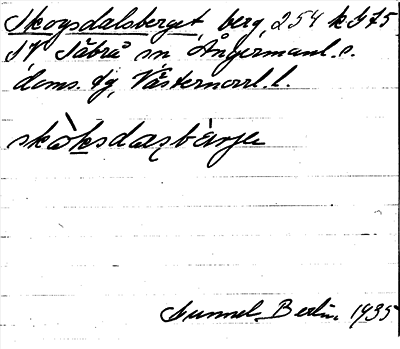 Skogsdalsberget, berg, 254 k G 75
SV Säbrå sn Ångermanl. s.
doms. dg, Västernorrl. l.
skòksdaɽsbàrje
Gunnel Bertlin 1935